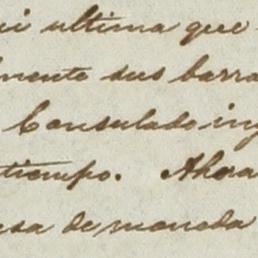 mi ultima que
mente sus barra
Consulado ing
tiempo. Ahora
sa de moneda